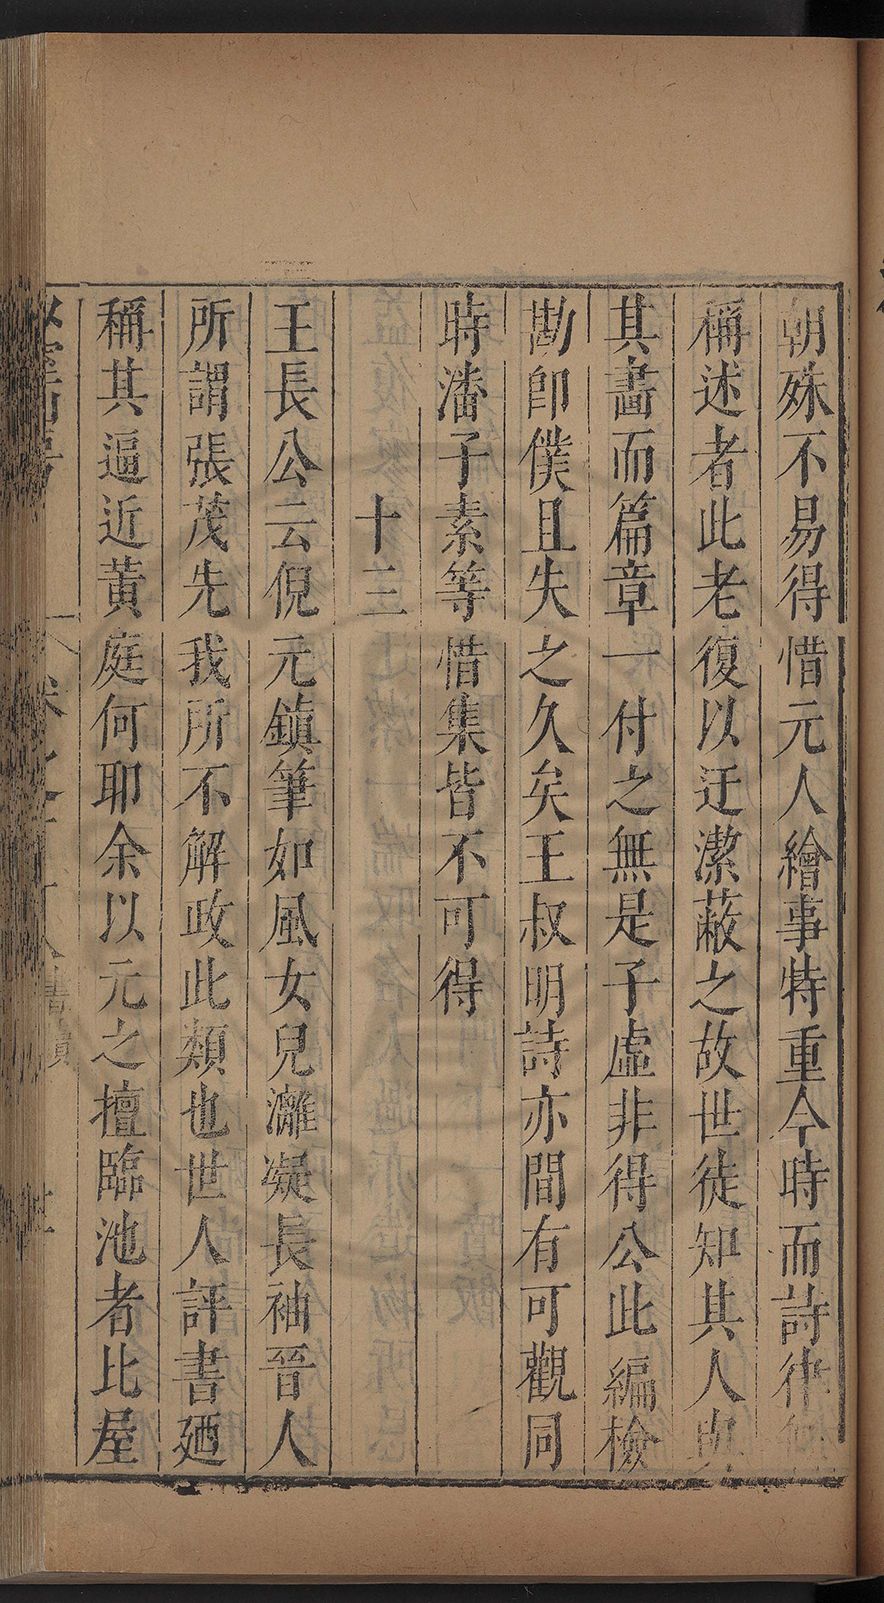 朝殊不易得惜元人繪事特重今時而詩律
稱述者此老復以迂潔蔽之故世徒知其人與
其畵而篇章一付之無是子虛非得公此編檢
勘卽僕且失之久矣王叔明詩亦間有可觀同
時潘子素等惜集皆不可得
十三
王長公云倪元鎮筆如風女兒灕凝長袖晉人
所謂張茂先我所不解政此類也世人評書廼
稱其逼近黃庭何耶余以元之擅臨池者比屋